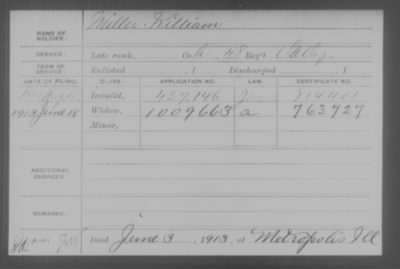 NAME OF SOLDIER: Miller William
SERVICE: Late rank, Co. 48 Reg't
TERM OF SERVICE: Enlisted , 1 Discharged , 1
DATE OF FILING. CLASS. APPLICATION NO. LAW. CERTIFICATE NO.
Invalid, 427,146
1913 June 18 Widow, 1009663 763727
Minor,
ADDITIONAL SERVICES:
REMARKS:
Died June 3, 1913, at Metropolis Ill